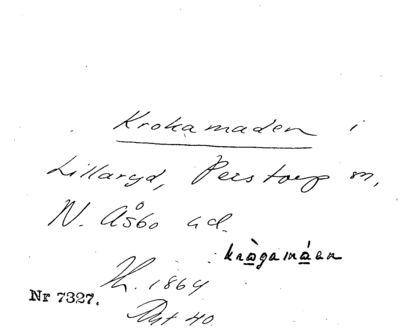 Krokamaden i
Lillaryd, Perstorp sn,
N. Åsbo hd.
kràgamáen
1864
Nr 7327.
40